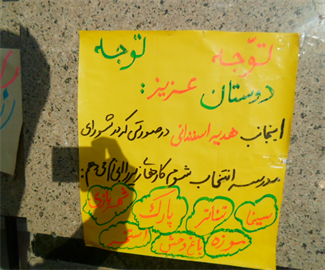 توجه توجه
دوستان عزیز :
اینجانب هدیه اسفندانی در صورتی که در شورای
مدرسه انتخاب شوم کارهای زیر را انجام می دهم :
سینما تئاتر پارک شهربازی
موزه باغ وحش استخر